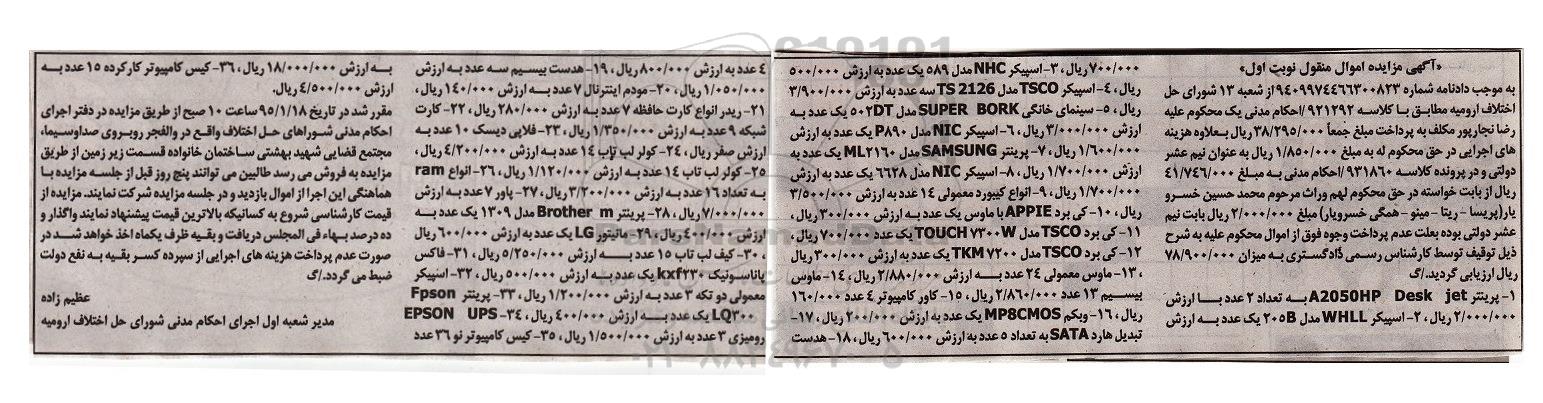 «آگهی مزایده اموال منقول نوبت اول»
به موجب دادنامه شماره ۹۴۰۹۹۷۴۴۶۶۳۰۰۸۲۳ از شعبه ۱۳ شورای حل
اختلاف ارومیه مطابق با کلاسه ۹۲۱۲۹۲ /احکام مدنی یک محکوم علیه
رضا نجارپور مکلف به پرداخت مبلغ جمعاً ۳۸/۲۹۵/۰۰۰ ریال بعلاوه هزینه
های اجرایی در حق محکوم له به مبلغ ۱/۸۵۰/۰۰۰ ریال به عنوان نیم عشر
دولتی و در پرونده کلاسه ۹۳۱۸۶۰ /احکام مدنی به مبلغ ۴۱/۷۴۶/۰۰۰
ریال از بابت خواسته در حق محکوم لهم وراث مرحوم محمد حسین خسرو
یار(پریسا - ریتا - مینو - همگی خسرویار) مبلغ ۲/۰۰۰/۰۰۰ ریال بابت نیم
عشر دولتی بوده بعلت عدم پرداخت وجوه فوق از اموال محکوم علیه به شرح
ذیل توقیف توسط کارشناس رسمی دادگستری به میزان ۷۸/۹۰۰/۰۰۰
ریال ارزیابی گردید./گ
۱- پرینتر A2050HP Desk jet به تعداد ۲ عدد با ارزش
۲/۰۰۰/۰۰۰ ریال، ۲- اسپیکر WHLL مدل ۲۰۵B یک عدد به ارزش
۷۰۰/۰۰۰ ریال، ۳- اسپیکر NHC مدل ۵۸۹ یک عدد به ارزش ۵۰۰/۰۰۰
ریال، ۴- اسپیکر TSCO مدل TS 2126 سه عدد به ارزش ۳/۹۰۰/۰۰۰
ریال، ۵- سینمای خانگی SUPER BORK مدل ۵۰۲DT یک عدد به
ارزش ۳/۰۰۰/۰۰۰ ریال، ۶- اسپیکر NIC مدل P۸۹۰ یک عدد به ارزش
۱/۶۰۰/۰۰۰ ریال، ۷- پرینتر SAMSUNG مدل ML۲۱۶۰ یک عدد به
ارزش ۱/۷۰۰/۰۰۰ ریال، ۸- اسپیکر NIC مدل ۶۶۲۸ یک عدد به ارزش
۱/۷۰۰/۰۰۰ ریال، ۹- انواع کیبورد معمولی ۱۴ عدد به ارزش ۳/۵۰۰/۰۰۰
ریال، ۱۰- کی برد APPIE با ماوس یک عدد به ارزش ۳۰۰/۰۰۰ ریال،
۱۱- کی برد TSCO مدل TOUCH ۷۳۰۰W یک عدد ۷۰۰/۰۰۰ ریال،
۱۲- کی برد TSCO مدل TKM ۷۲۰۰ یک عدد به ارزش ۳۰۰/۰۰۰ ریال
، ۱۳- ماوس معمولی ۲۴ عدد به ارزش ۲/۸۸۰/۰۰۰ ریال، ۱۴- ماوس
بیسیم ۱۳ عدد ۲/۸۶۰/۰۰۰ ریال، ۱۵- کاور کامپیوتر ۴ عدد ۱۶۰/۰۰۰
ریال، ۱۶- وبکم MP8CMOS یک عدد به ارزش ۲۰۰/۰۰۰ ریال، ۱۷-
تبدیل هارد SATA به تعداد ۵ عدد به ارزش ۶۰۰/۰۰۰ ریال، ۱۸- هدست
۴ عدد به ارزش ۸۰۰/۰۰۰ ریال، ۱۹- هدست بیسیم سه عدد به ارزش
۱/۰۵۰/۰۰۰ ریال، ۲۰- مودم اینترنال ۷ عدد به ارزش ۱۴۰/۰۰۰ ریال،
۲۱- ریدر انواع کارت حافظه ۷ عدد به ارزش ۲۸۰/۰۰۰ ریال، ۲۲- کارت
شبکه ۹ عدد به ارزش ۱/۳۵۰/۰۰۰ ریال، ۲۳- فلاپی دیسک ۱۰ عدد به
ارزش صفر ریال، ۲۴- کولر لب تاب ۱۴ عدد به ارزش ۴/۲۰۰/۰۰۰ ریال،
۲۵- کولر لب تاب ۱۴ عدد به ارزش ۱/۱۲۰/۰۰۰ ریال، ۲۶- انواع ram
به تعداد ۱۶ عدد به ارزش ۳/۲۰۰/۰۰۰ ریال، ۲۷- پاور ۷ عدد به ارزش
۷/۰۰۰/۰۰۰ ریال، ۲۸- پرینتر Brother m مدل ۱۳۰۹ یک عدد به
ارزش ۴۰۰/۰۰۰ ریال، ۲۹- مانیتور LG یک عدد به ارزش ۶۰۰/۰۰۰ ریال
، ۳۰- کیف لب تاب ۱۵ عدد به ارزش ۵/۲۵۰/۰۰۰ ریال، ۳۱- فاکس
پاناسونیک kxf۲۳۰ یک عدد به ارزش ۵۰۰/۰۰۰ ریال، ۳۲- اسپیکر
معمولی دو تکه ۳ عدد به ارزش ۱/۲۰۰/۰۰۰ ریال، ۳۳- پرینتر Fpson
LQ۳۰۰ یک عدد به ارزش ۴۰۰/۰۰۰ ریال، ۳۴- EPSON UPS
رومیزی ۳ عدد به ارزش ۱/۵۰۰/۰۰۰ ریال، ۳۵- کیس کامپیوتر نو ۳۶ عدد
به ارزش ۱۸/۰۰۰/۰۰۰ ریال، ۳۶- کیس کامپیوتر کارکرده ۱۵ عدد به
ارزش ۴/۵۰۰/۰۰۰ ریال.
مقرر شد در تاریخ ۹۵/۱/۱۸ ساعت ۱۰ صبح از طریق مزایده در دفتر اجرای
احکام مدنی شوراهای حل اختلاف واقع در والفجر روبروی صداوسیما،
مجتمع قضایی شهید بهشتی ساختمان خانواده قسمت زیر زمین از طریق
مزایده به فروش می رسد طالبین می توانند پنج روز قبل از جلسه مزایده با
هماهنگی این اجرا از اموال بازدید و در جلسه مزایده شرکت نمایند. مزایده از
قیمت کارشناسی شروع به کسانیکه بالاترین قیمت پیشنهاد نمایند واگذار و
ده درصد بهاء فی المجلس دریافت و بقیه ظرف یکماه اخذ خواهد شد در
صورت عدم پرداخت هزینه های اجرایی از سپرده کسر بقیه به نفع دولت
ضبط می گردد./گ
عظیم زاده
مدیر شعبه اول اجرای احکام مدنی شورای حل اختلاف ارومیه